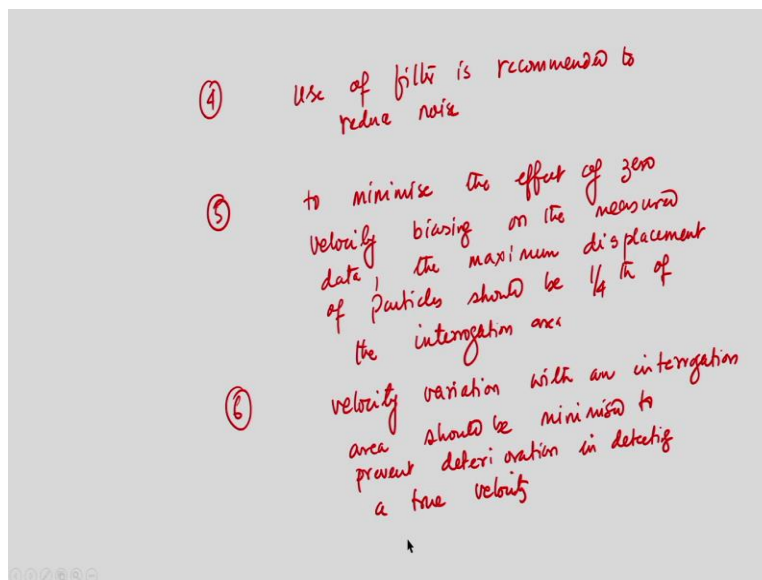 ④ Use of filter is recommended to
reduce noise
⑤ to minimise the effect of zero
velocity biasing on the measured
data, the maximum displacement
of particles should be 1/4 th of
the interrogation area
⑥ velocity variation with an interrogation
area should be minimised to
prevent deterioration in detecting
a true velocity